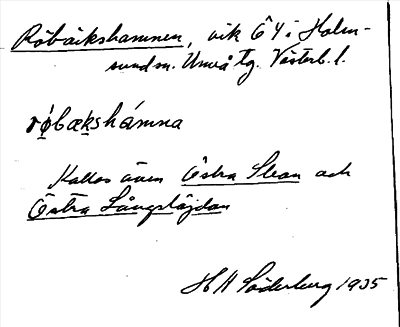 Röbäckshamnen, vik Ö Y i Holm-
sund sn. Umeå tg. Västerb. l.
røbækshámna
Kallas även Östra Stean och
Östra Långslöjdan
H H Söderberg 1935